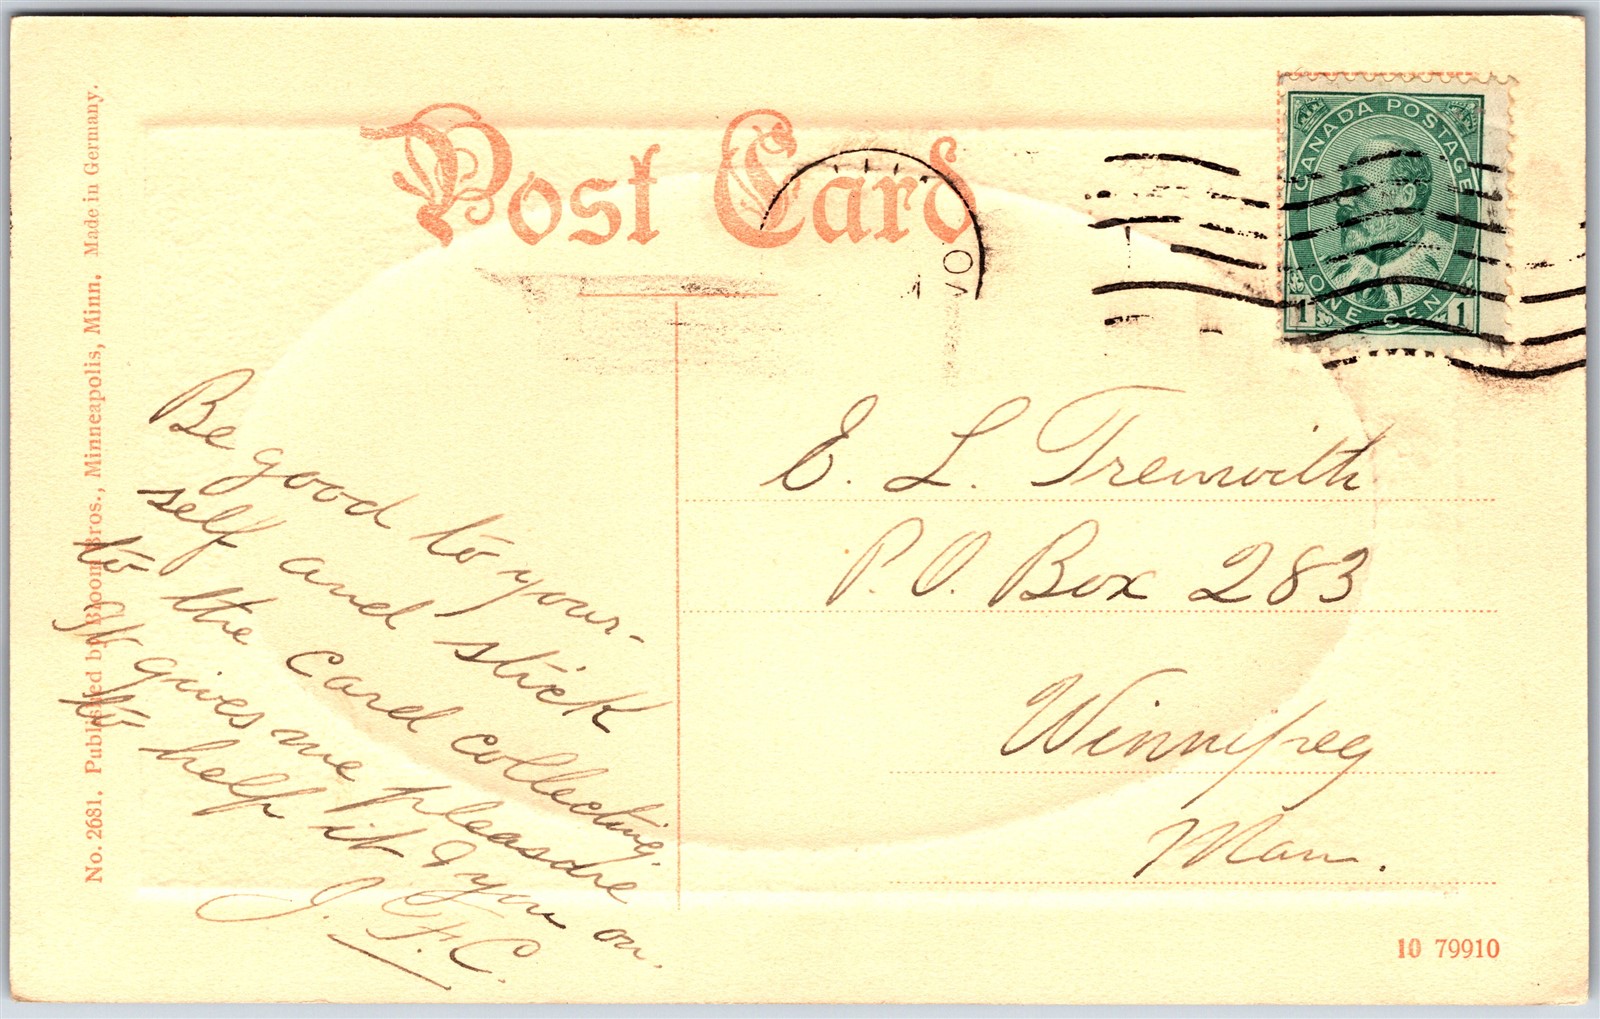 Post Card
CANADA POSTAGE
1 ONE CENT 1
No. 2681. Published by Bloom Bros., Minneapolis, Minn. Made in Germany.
Be good to your-
self and stick
to the card collecting.
It gives me pleasure
to help it & you on.
J. F. C.
E. L. Trenwith
P.O. Box 283
Winnipeg
Man.
10 79910